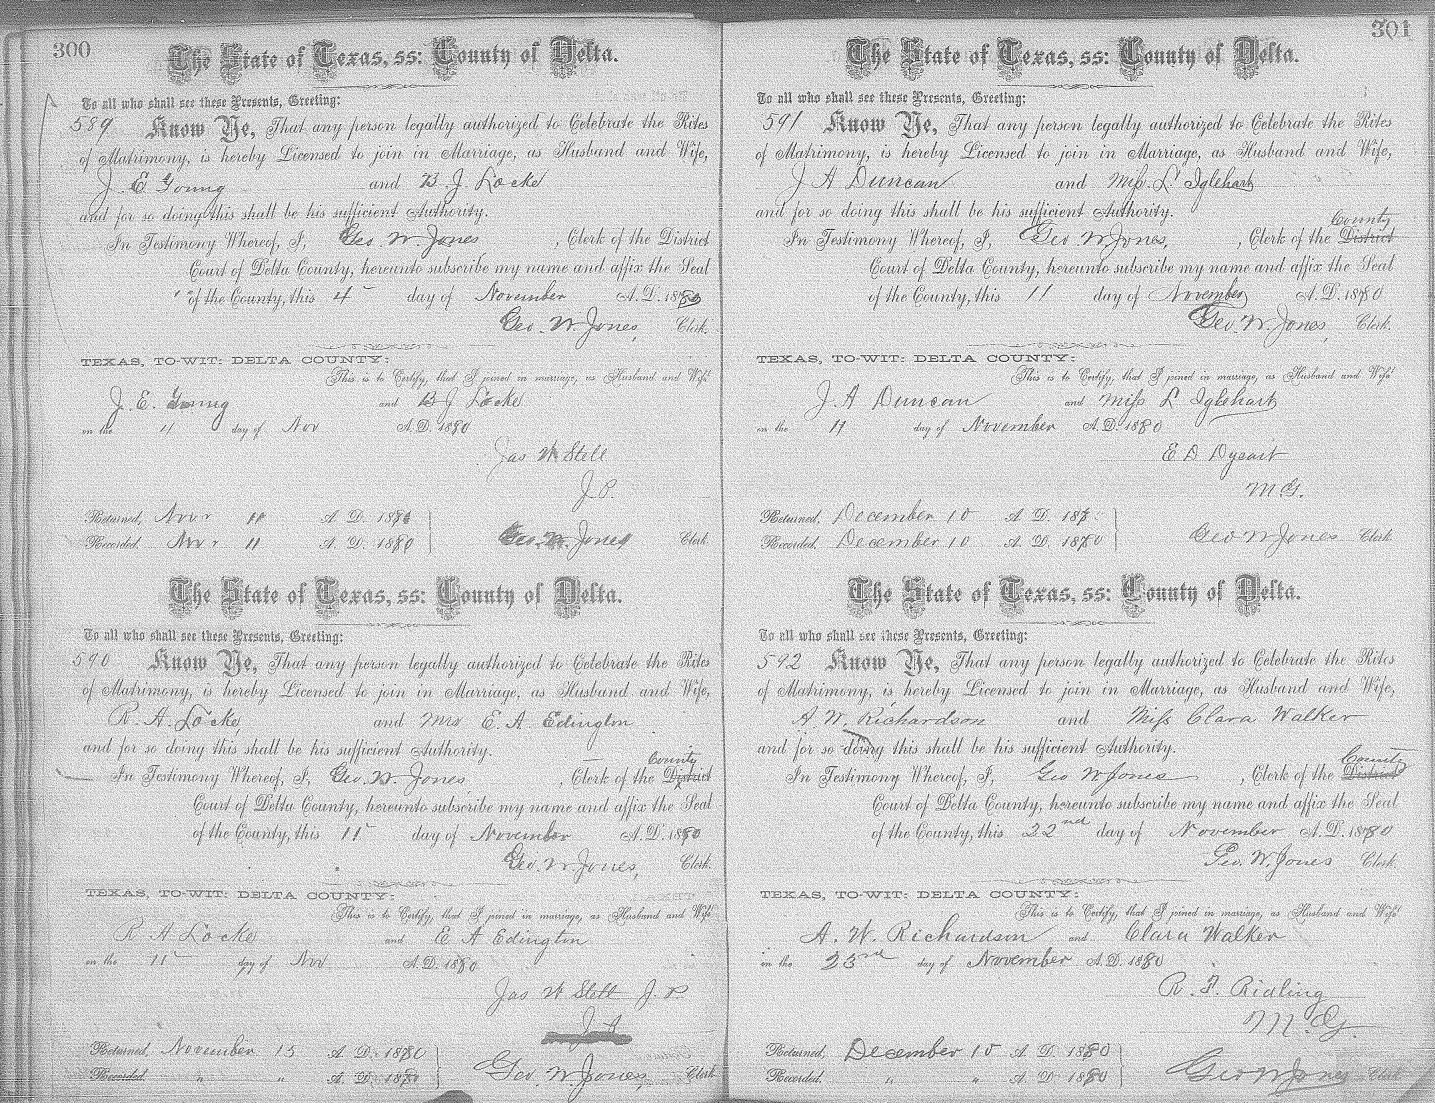 300
The State of Texas, ss: County of Delta.
To all who shall see these Presents, Greeting:
589 Know Ye, That any person legally authorized to Celebrate the Rites
of Matrimony, is hereby Licensed to join in Marriage, as Husband and Wife,
J. E Young and B. J. Locke
and for so doing this shall be his sufficient Authority.
In Testimony Whereof, I, Geo. W. Jones , Clerk of the District
Court of Delta County, hereunto subscribe my name and affix the Seal
of the County, this 4 day of November A. D. 1880
Geo. W Jones, Clerk.
TEXAS, TO-WIT: DELTA COUNTY:
This is to Certify, that I joined in marriage, as Husband and Wife
J. E. Young and B J Locke
on the 11 day of Nov A. D. 1880
Jas W Stell
J. P.
Returned, Novr 11 A. D. 1880
Recorded, Novr 11 A. D. 1880 Geo. W. Jones Clerk
The State of Texas, ss: County of Delta.
To all who shall see these Presents, Greeting:
590 Know Ye, That any person legally authorized to Celebrate the Rites
of Matrimony, is hereby Licensed to join in Marriage, as Husband and Wife,
R. A. Locke and Mrs E. A Edington
and for so doing this shall be his sufficient Authority.
County
In Testimony Whereof, I, Geo. W. Jones , Clerk of the District
Court of Delta County, hereunto subscribe my name and affix the Seal
of the County, this 11 day of November A. D. 1880
Geo. W Jones, Clerk.
TEXAS, TO-WIT: DELTA COUNTY:
This is to Certify, that I joined in marriage, as Husband and Wife
R A Locke and E A Edington
on the 11 day of Nov A. D. 1880
Jas W Stell J. P
Returned, November 15 A. D. 1880
Recorded, " " A. D. 1880 Geo. W. Jones, Clerk
301
The State of Texas, ss: County of Delta.
To all who shall see these Presents, Greeting:
591 Know Ye, That any person legally authorized to Celebrate the Rites
of Matrimony, is hereby Licensed to join in Marriage, as Husband and Wife,
J A Duncan and Miss L Iglehart
and for so doing this shall be his sufficient Authority.
County
In Testimony Whereof, I, Geo W Jones, , Clerk of the District
Court of Delta County, hereunto subscribe my name and affix the Seal
of the County, this 11 day of November A. D. 1880
Geo. W. Jones, Clerk.
TEXAS, TO-WIT: DELTA COUNTY:
This is to Certify, that I joined in marriage, as Husband and Wife
J. A Duncan and Miss L Iglehart
on the 11 day of November A. D. 1880
E D Dysart
M G.
Returned, December 10 A. D. 18
Recorded, December 10 A. D. 1880 Geo W Jones Clerk
The State of Texas, ss: County of Delta.
To all who shall see these Presents, Greeting:
592 Know Ye, That any person legally authorized to Celebrate the Rites
of Matrimony, is hereby Licensed to join in Marriage, as Husband and Wife,
A W. Richardson and Miss Clara Walker
and for so doing this shall be his sufficient Authority.
County
In Testimony Whereof, I, Geo W Jones , Clerk of the District
Court of Delta County, hereunto subscribe my name and affix the Seal
of the County, this 22nd day of November A. D. 1880
Geo. W. Jones Clerk.
TEXAS, TO-WIT: DELTA COUNTY:
This is to Certify, that I joined in marriage, as Husband and Wife
A. W. Richardson and Clara Walker
on the 23rd day of November A. D. 1880
R. F. Ridling
M. G.
Returned, December 10 A. D. 1880
Recorded, " " A. D. 1880 Geo W Jones Clerk